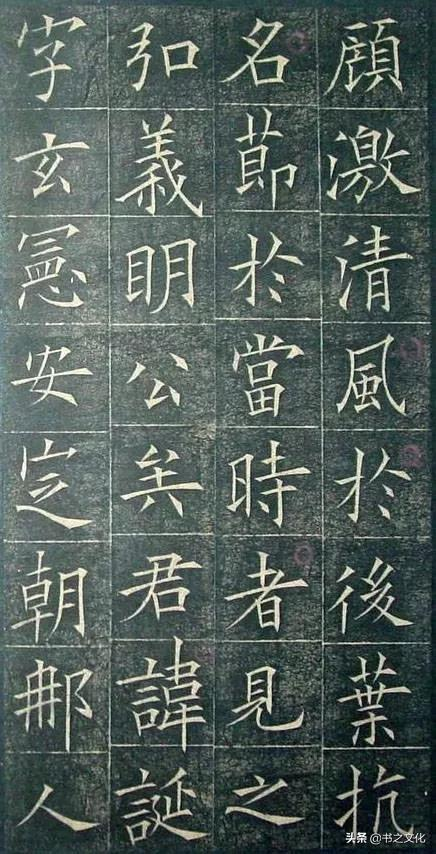 顧激清風於後葉抗
名節於當時者見之
弘義明公矣君諱誕
字玄憲安定朝那人
头条 @书之文化